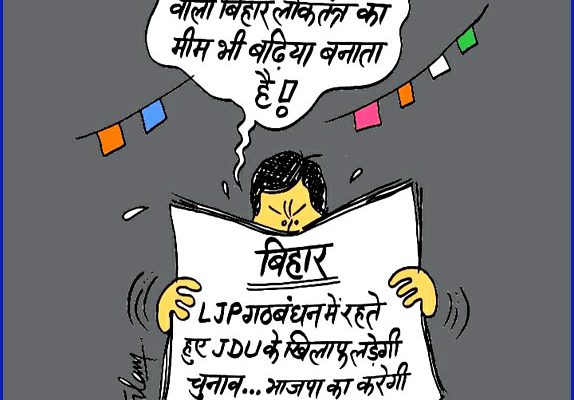 वाला बिहार लोकतंत्र का
मीम भी बढ़िया बनाता
है!
बिहार
LJP गठबंधन में रहते
हुए JDU के खिलाफ लड़ेगी
चुनाव... भाजपा का करेगी